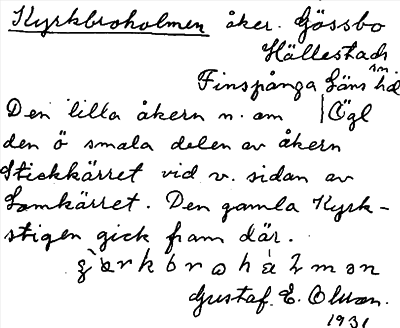 Kyrkbroholmen åker. Gössbo
Hällestads
sn
Finspånga Läns hd
Den lilla åkern n. om | Ögl
den ö smala delen av åkern
Stickkärret vid v. sidan av
Lomkärret. Den gamla Kyrk-
stigen gick fram där.
Gustaf. E. Olsson.
1931